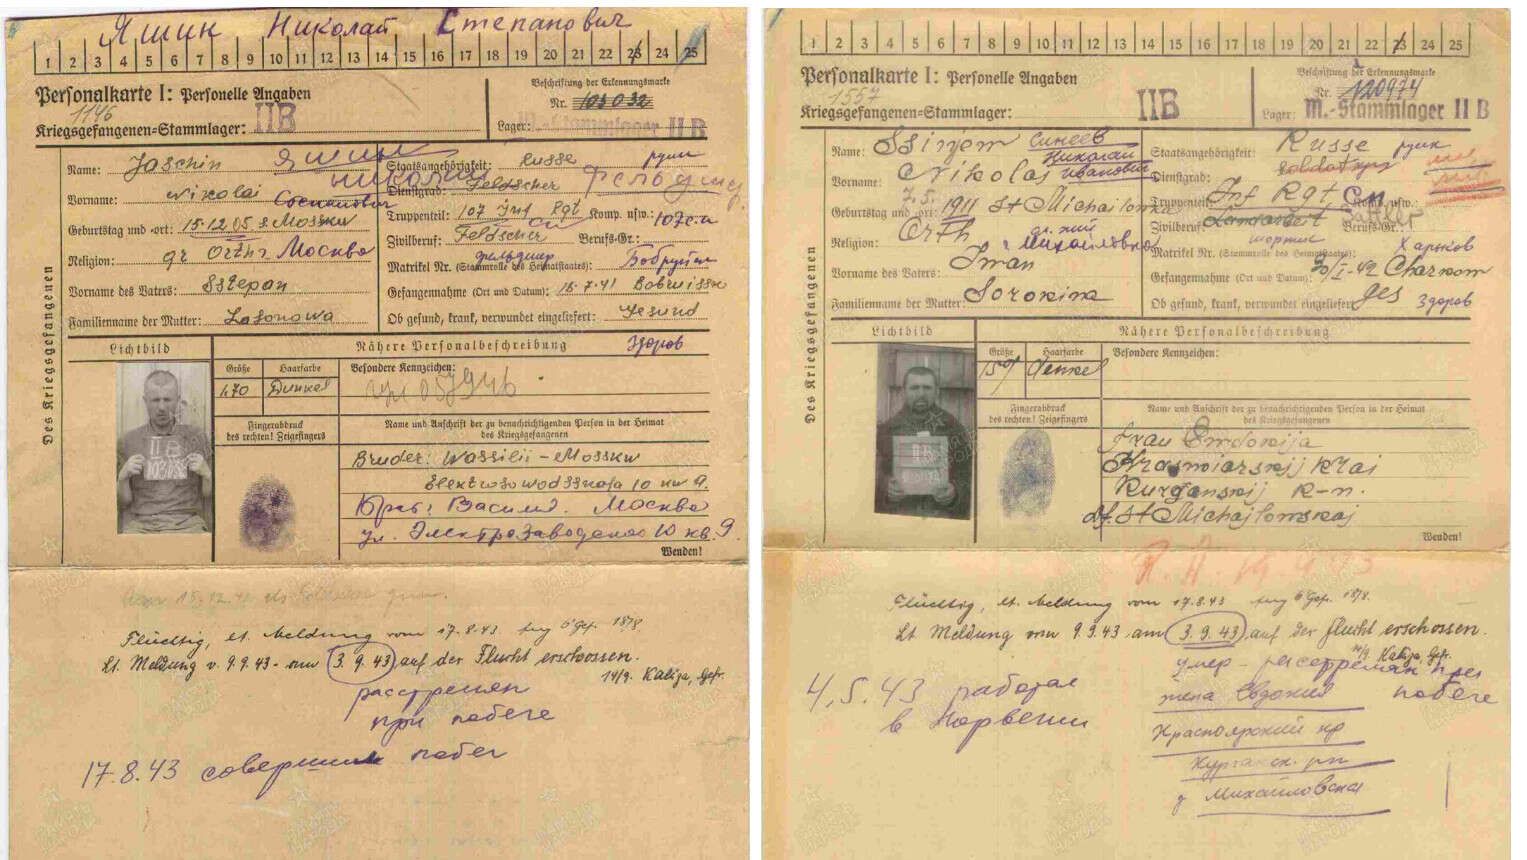 Яшин Николай Степанович
1 2 3 4 5 6 7 8 9 10 11 12 13 14 15 16 17 18 19 20 21 22 23 24 25
Personalkarte I: Personelle Angaben
Beschriftung der Erkennungsmarke
1146
Nr. 103032
Kriegsgefangenen=Stammlager: II B
Lager: M.-Stammlager II B
Des Kriegsgefangenen
Name: Jaschin Яшин
Vorname: Nikolai Николай
Geburtstag und -ort: 15.12.05 Mosskw
Religion: gr Orth. Москва
Vorname des Vaters: Sstepan
Familienname der Mutter:
Staatsangehörigkeit: Russe русск
Dienstgrad: Feldscher
Truppenteil: 107 Inf Rgt Komp. usw.: 107 с.п
Zivilberuf: Feldscher Berufs-Gr.:
фельдшер
Matrikel Nr. (Stammrolle des Heimatstaates): Бобруйск
Gefangennahme (Ort und Datum): 15.7.41 Bobruissk
Ob gesund, krank, verwundet eingeliefert: Gesund
Lichtbild
Nähere Personalbeschreibung здоров
Größe Haarfarbe Besondere Kennzeichen:
170 Dunkel
II B
Fingerabdruck
des rechten! Zeigefingers
Name und Anschrift der zu benachrichtigenden Person in der Heimat
des Kriegsgefangenen
Bruder: Wassilii - Mosskw
Elektrosawodsskaja 10 kw 9.
Брат: Василий. Москва
ул. Электрозаводская 10 кв. 9
Wenden!
Flüchtig, lt. Meldung vom 17.8.43
Lt. Meldung v. 9.9.43 am 3.9.43 auf der Flucht erschossen.
14/9. Kaliga, Gefr.
расстрелян
при побеге
17.8.43 совершил побег
1 2 3 4 5 6 7 8 9 10 11 12 13 14 15 16 17 18 19 20 21 22 23 24 25
Personalkarte I: Personelle Angaben
Beschriftung der Erkennungsmarke
1557
Nr. 120974
Kriegsgefangenen=Stammlager: II B
Lager: M.-Stammlager II B
Des Kriegsgefangenen
Name: Ssinjew Синеев
Vorname: Nikolaj Николай Иванович
Geburtstag und -ort: 7.5. 1911 St Michailowka
Religion: Orth Михайловка
Vorname des Vaters: Iwan
Familienname der Mutter: Sorokina
Staatsangehörigkeit: Russe русск
Dienstgrad: Soldat
Truppenteil: Inf Rgt
Zivilberuf: Sattler Berufs-Gr.:
Matrikel Nr. (Stammrolle des Heimatstaates): Харьков
Gefangennahme (Ort und Datum): 30/I-42 Charkow
Ob gesund, krank, verwundet eingeliefert: ges здоров
Lichtbild
Nähere Personalbeschreibung
Größe Haarfarbe Besondere Kennzeichen:
II B
Fingerabdruck
des rechten! Zeigefingers
Name und Anschrift der zu benachrichtigenden Person in der Heimat
des Kriegsgefangenen
Frau Ewdokija
Krasnoiarskij Krai
Kurganskij R-n.
St Michajlowskaj
Wenden!
Flüchtig, lt. Meldung vom 17.8.43
Lt Meldung vom 9.9.43 am 3.9.43 auf der Flucht erschossen.
14/9. Kaliga, Gefr.
умер - расстрелян при
побеге
4.5.43 работал
в Норвегии
жена Евдокия
Красноярский кр
Курганск. рн
Михайловска